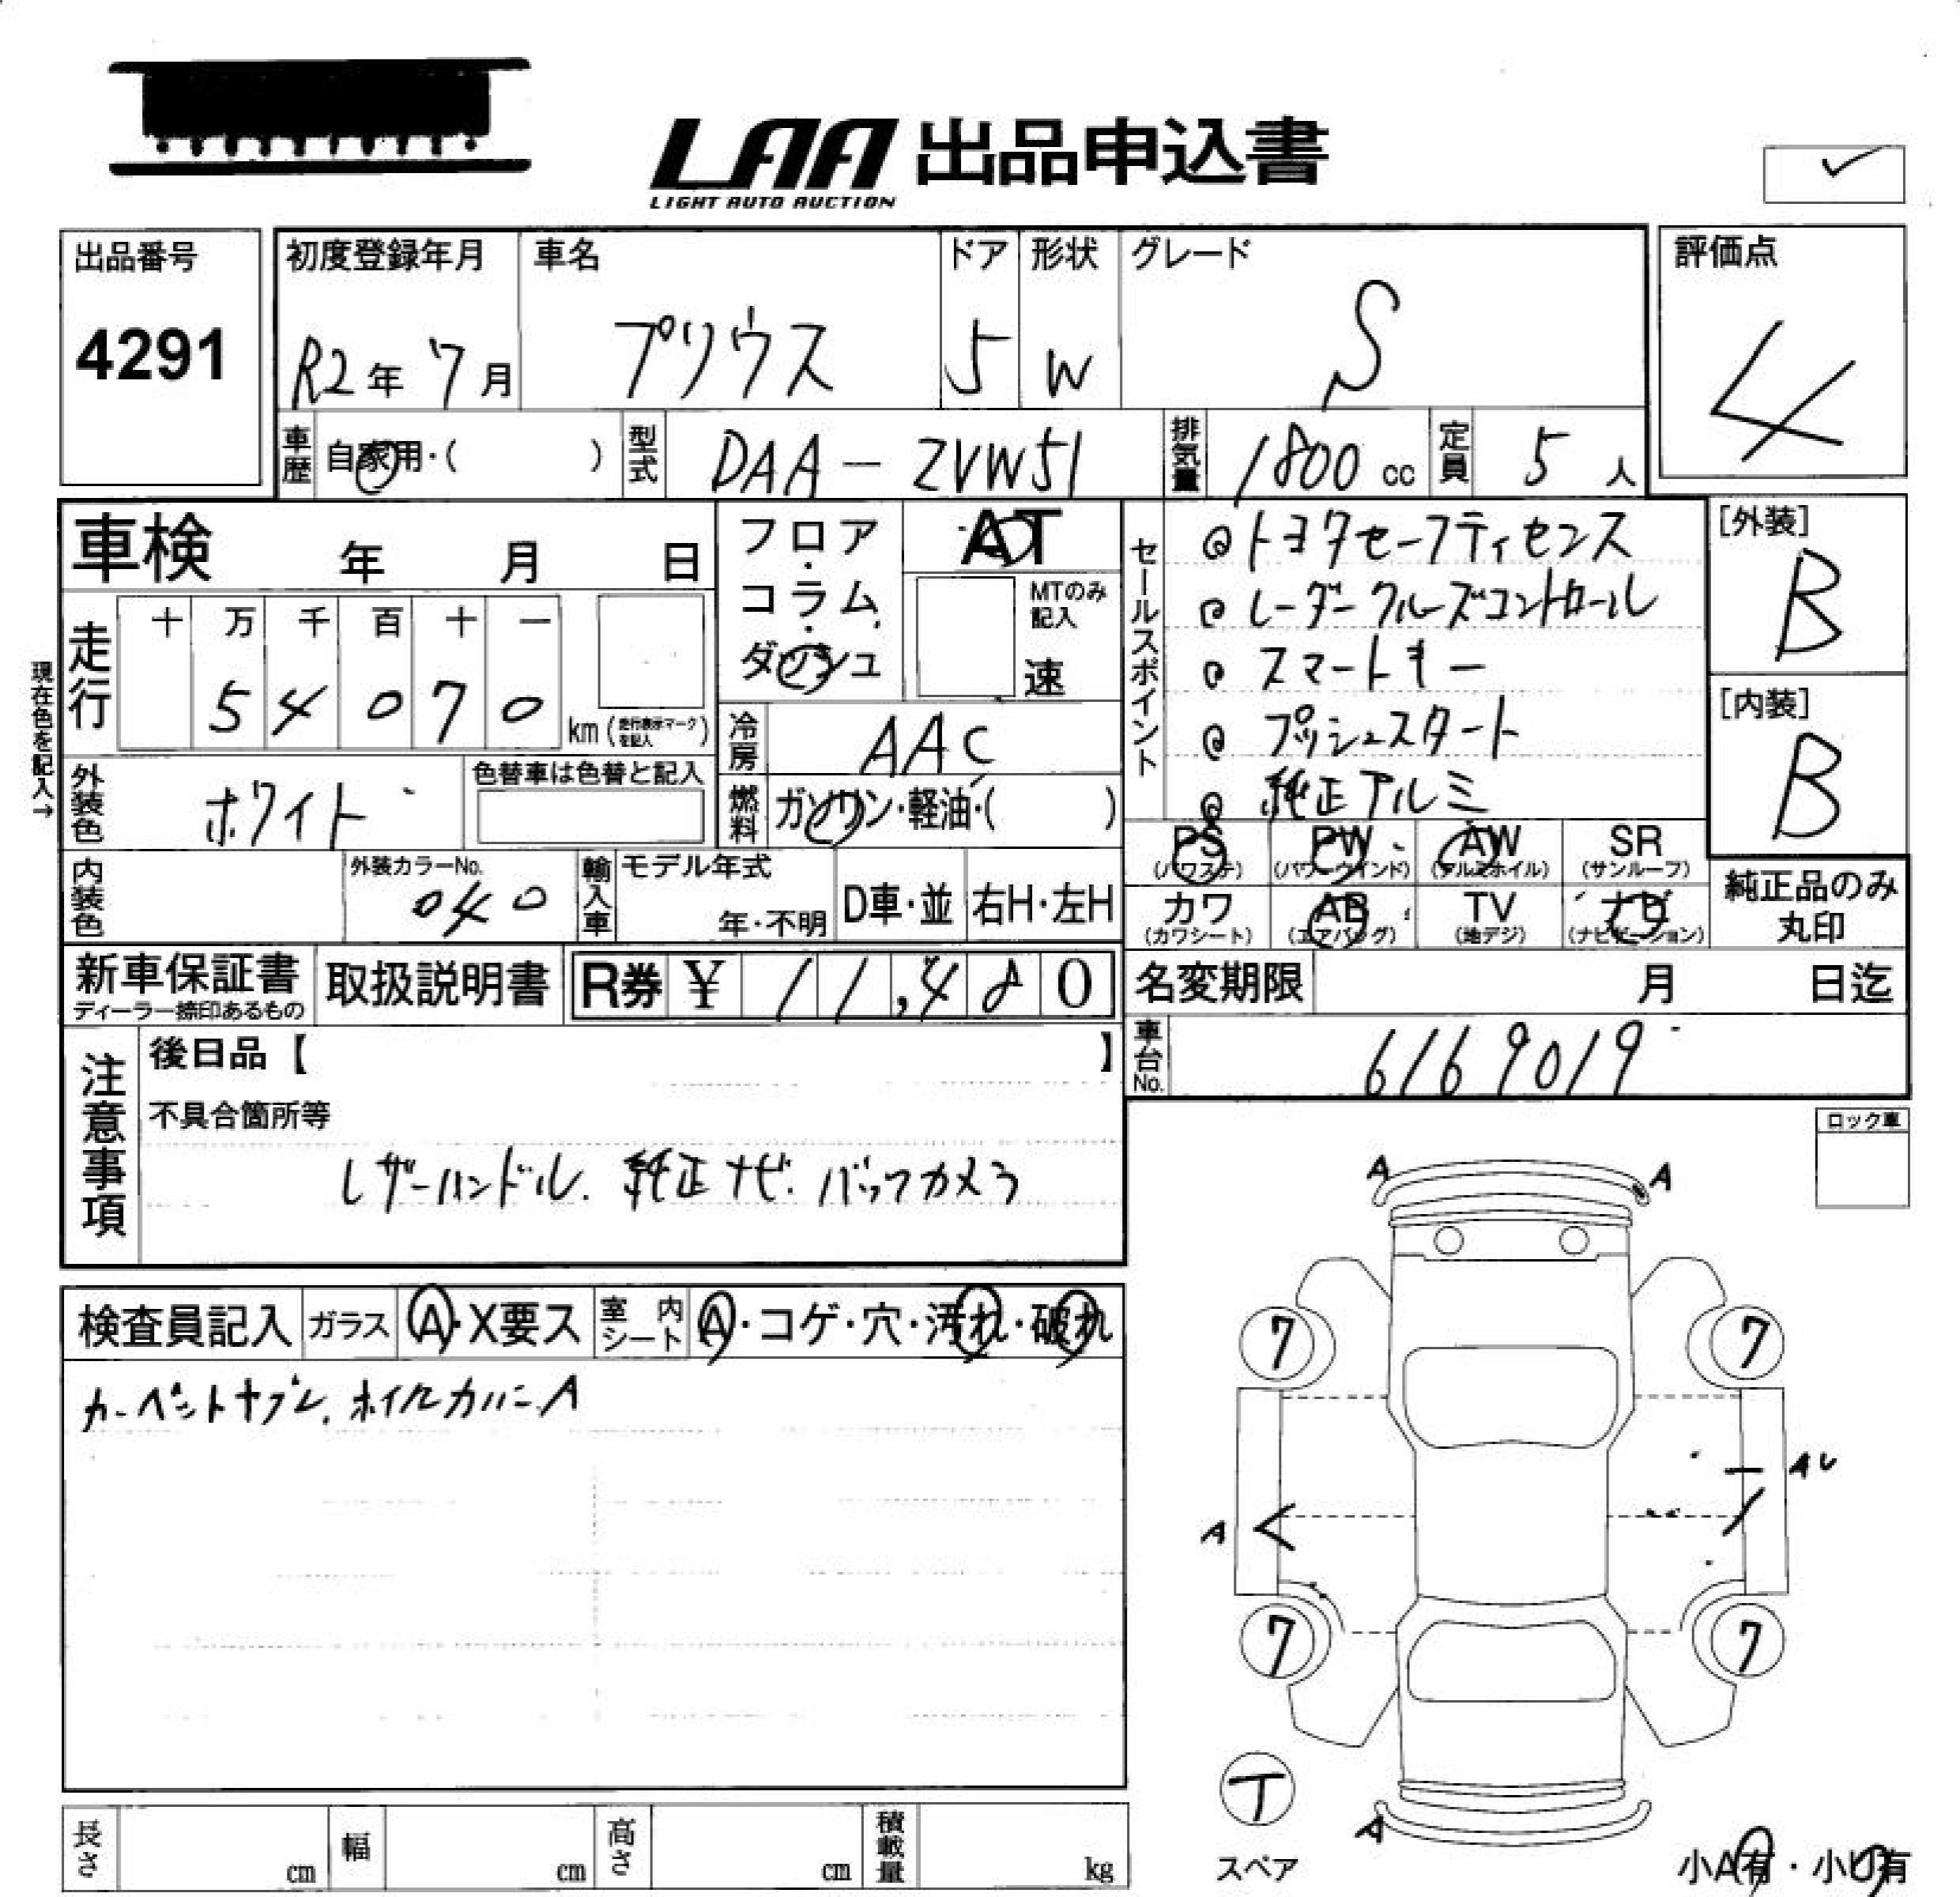 LAA 出品申込書
LIGHT AUTO AUCTION
出品番号
4291
初度登録年月
R2年 7月
車名
プリウス
ドア
5
形状
W
グレード
S
評価点
4
車歴
自家用・( )
型式
DAA-ZVW51
排気量
1800 cc
定員
5 人
車検 年 月 日
フロア・コラム・ダッシュ
AT
MTのみ記入
速
セールスポイント
@トヨタセーフティセンス
@レーダークルーズコントロール
@スマートキー
@プッシュスタート
@純正アルミ
[外装]
B
[内装]
B
現在色を記入→
走行
十 万 千 百 十 一
5 4 0 7 0
km(走行表示マークを記入)
冷房
AAC
外装色
ホワイト
色替車は色替と記入
燃料
ガソリン・軽油・( )
PS (パワステ)
PW (パワーウインド)
AW (アルミホイル)
SR (サンルーフ)
内装色
外装カラーNo.
040
輸入車
モデル年式
年・不明
D車・並
右H・左H
カワ (カワシート)
AB (エアバッグ)
TV (地デジ)
ナビ (ナビゲーション)
純正品のみ
丸印
新車保証書
ディーラー捺印あるもの
取扱説明書
R券 ¥ 11,480
名変期限 月 日迄
車台No.
6169019
注意事項
後日品【 】
不具合箇所等
レザーハンドル. 純正ナビ. バックカメラ
ロック車
検査員記入
ガラス
A・X要ス
室内シート
A・コゲ・穴・汚れ・破れ
カーペットヤブレ. ホイルカバーA
A A
7 7
AU
A
7 7
T
スペア
A
小A有・小U有
長さ cm
幅 cm
高さ cm
積載量 kg